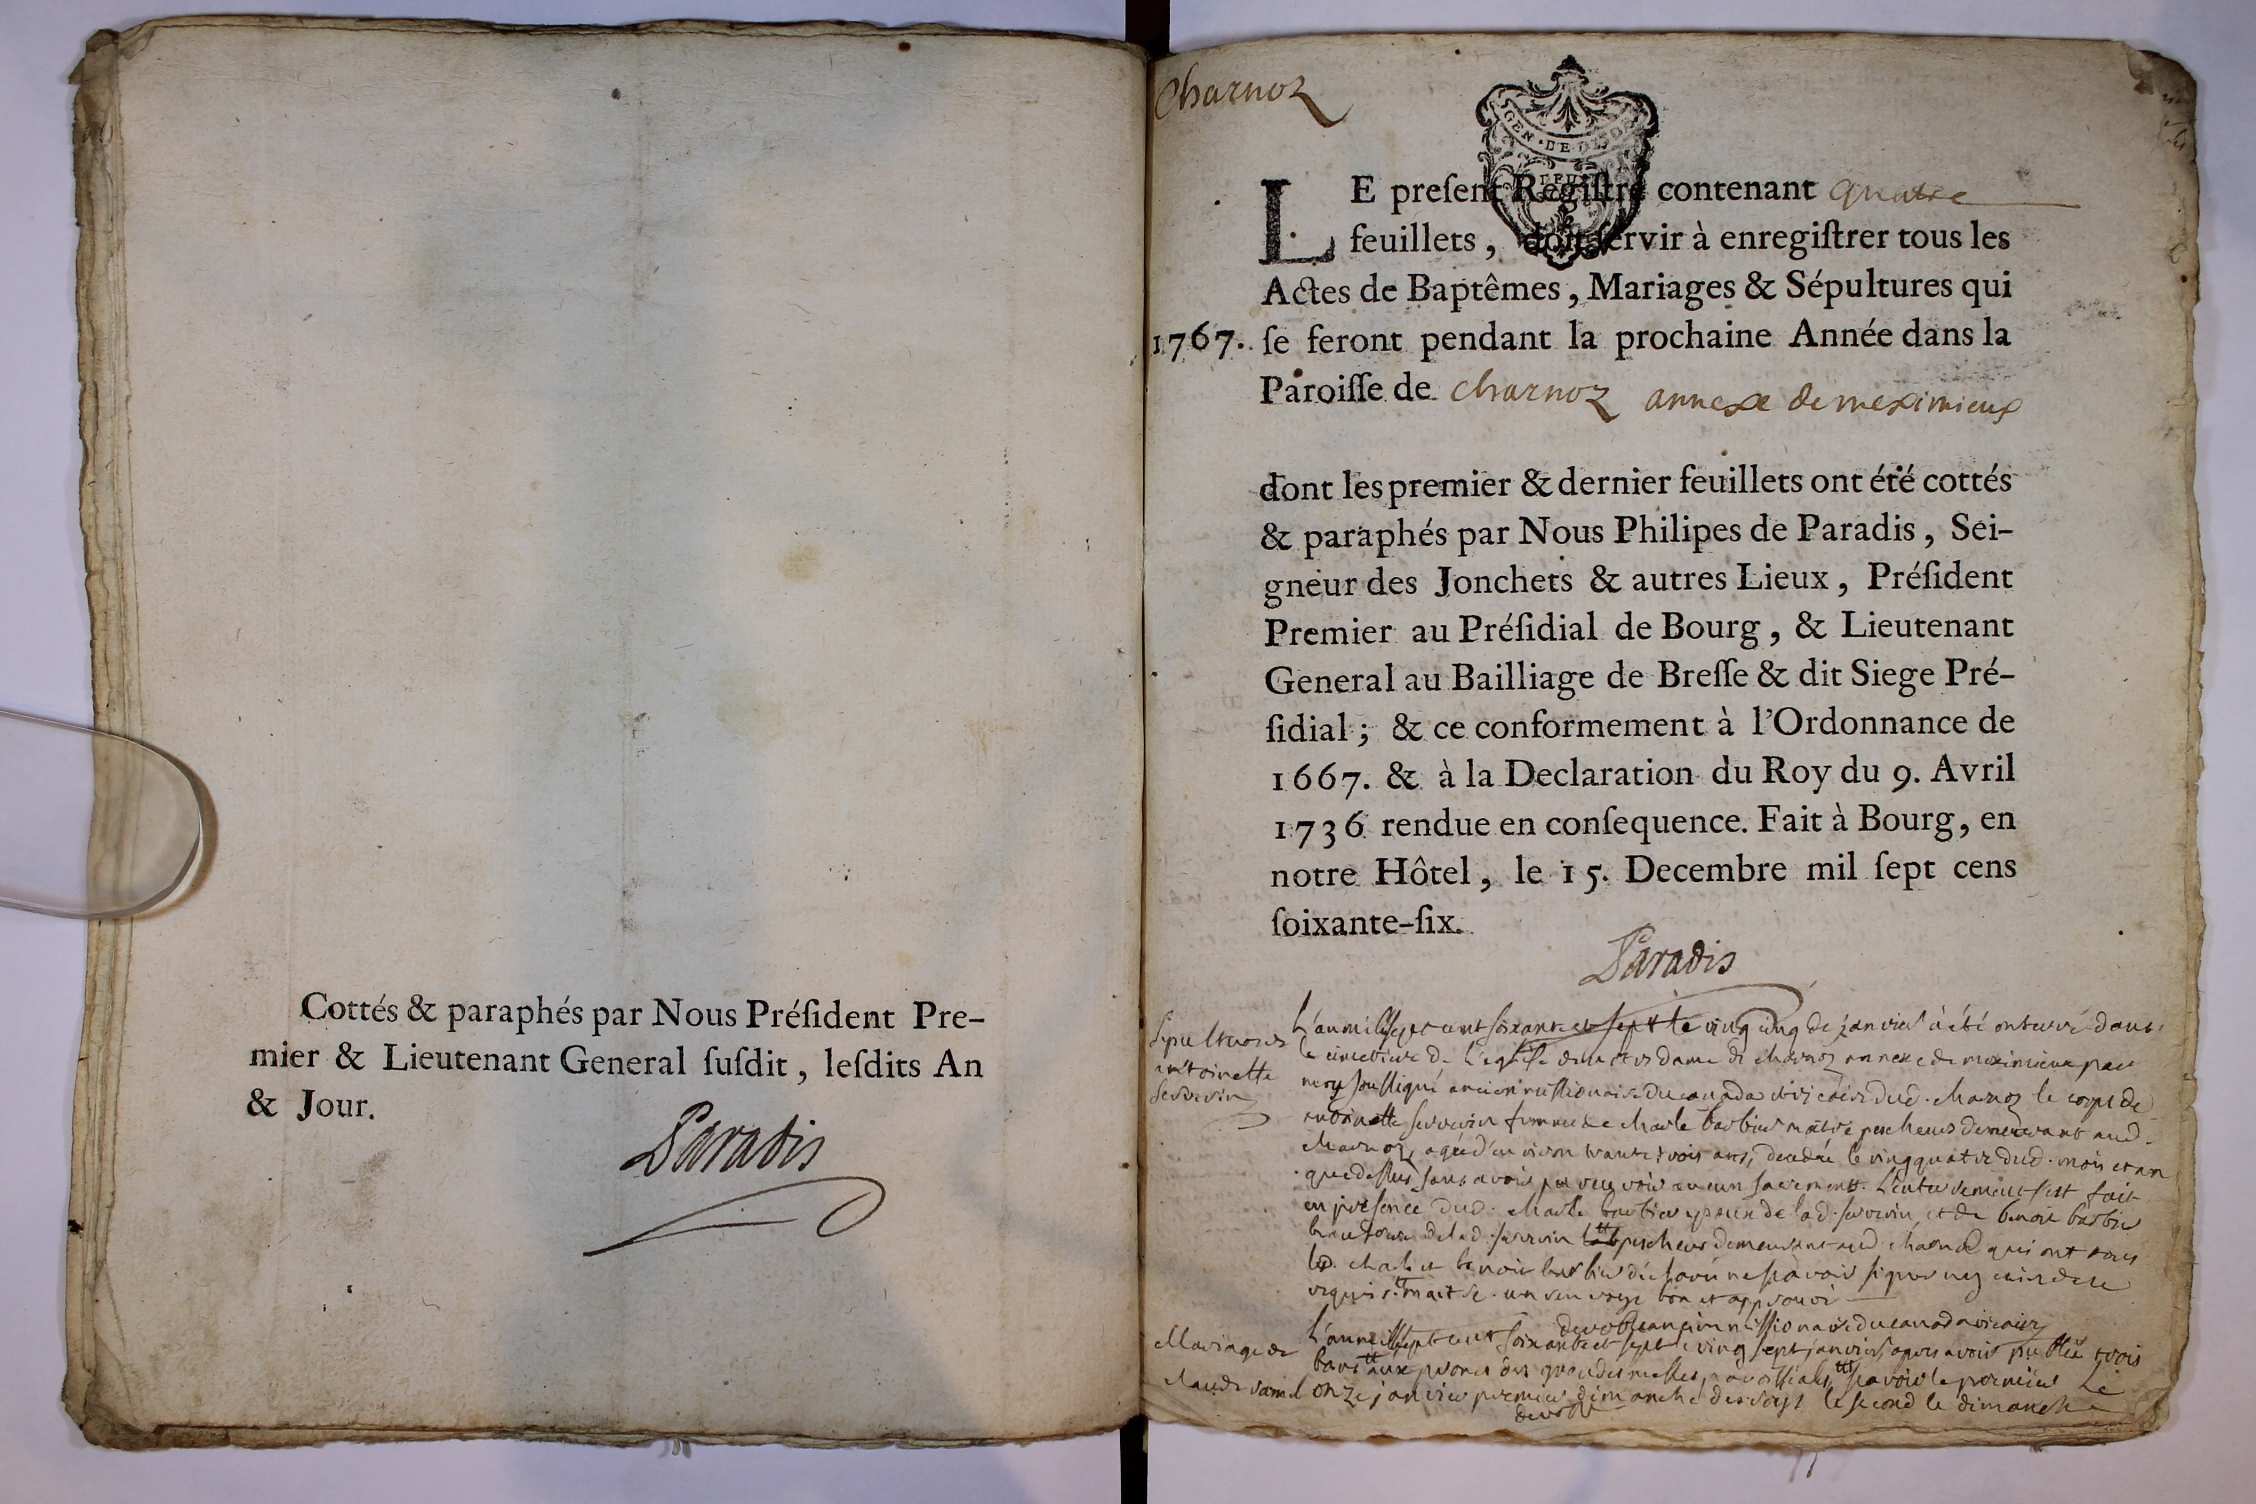 Cottés & paraphés par Nous Préſident Pre-
mier & Lieutenant General ſuſdit, leſdits An
& Jour.
Paradis
Charnoz
GEN · DE · DIJON
LE preſent Regiſtre contenant quatre
feuillets, doit ſervir à enregiſtrer tous les
Actes de Baptêmes, Mariages & Sépultures qui
1767. ſe feront pendant la prochaine Année dans la
Paroiſſe de charnoz annexe de meximieux
dont les premier & dernier feuillets ont été cottés
& paraphés par Nous Philipes de Paradis, Sei-
gneur des Jonchets & autres Lieux, Préſident
Premier au Préſidial de Bourg, & Lieutenant
General au Bailliage de Breſſe & dit Siege Pré-
ſidial; & ce conformement à l'Ordonnance de
1667. & à la Declaration du Roy du 9. Avril
1736 rendue en conſequence. Fait à Bourg, en
notre Hôtel, le 15. Decembre mil ſept cens
ſoixante-ſix.
Paradis
Sepulture de
antoinette
serverin
L'an mil sept cent soixante et sept le vingt cinq de janvier à été enterré dans
le cimetiere de L'eglise de notre dame de charnoz annexe de meximieux par
moy soussigné ancien missionaire du canada vicaire dud. charnoz le corps de
antoinette serverin femme de charle barbier maitre pescheur demeurant aud.
charnoz, agée d'environ trante trois ans, decedée le vingt quatre dud. mois et an
que dessus sans avoir pu recevoir aucun sacrement. L'enterrement s'est fait
en presence dud. charle barbier epoux de lad. serverin, et de benoit barbier
beau de lad. serverin pescheur demeurant aud. charnoz qui ont tous
led. charle et benoit barbier déclaré ne sçavoir signer
requis. bon et approuvé
ancien missionaire du canada vicaire
Mariage de
claude
L'an mil sept cent soixante et sept le vingt sept janvier, apres avoir publié trois
bans aux prones des grandes messes paroissiales, sçavoir le premier Le
onze janvier premier dimanche des roys le second le dimanche